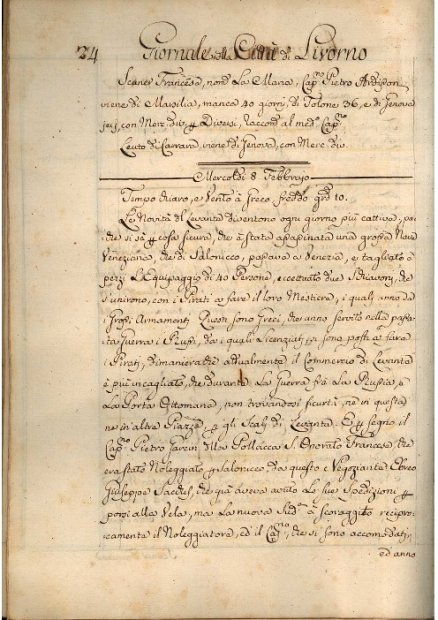 24 Giornale della Città di Livorno
Scaner Francese, nom.o La Maria, Cap.no Pietro
viene di Marsilia, manca 40 giorni, di Tolone 36, e di Genova
sej, con Merc. div. p Diversi, raccom. al med.o Cap.no
Leuto di Carrara, viene di Genova, con Merc. div.
Mercoldi 8 Febbrajo
Tempo chiaro, e Vento à Greco freddo grd. 10.
Le Novità del Levante diventono ogni giorno più cattive, poi
che si sà p cosa sicura, che è stata assassinata una grossa Nave
Veneziana, che di Salonicco, passava a Venezia, e tagliato a
pezzi L'Equipaggio di 40 Persone, eccettuato due Schiavoni, che
s'unirono, con i Pirati a fare il loro Mestiere, i quali anno de
Grossi Armamenti. Questi sono Greci, che anno servito nella passa
ta Guerra i Russi, da i quali Licenziati si sono posti a fare
i Pirati, dimanierache attualmente il Commercio di Levante
è più incagliato, che durante La Guerra frà La Russia, e
La Porta Ottomana, non trovandosi sicurtà, ne in questa
ne in altre Piazze, p gli Scali di Levante. E p segno il
Cap.no Pietro della Pollacca S. Onorato Francese, che
era stato Noleggiato p Salonicco, da questo Negoziante Ebreo
Giuseppe che già aveva avuto Le sue Spedizioni p
porsi alla Vela, ma La nuova sud.a à scoraggito recipro-
camente il Noleggiatore, ed il Cap.no, che si sono accomodati,
ed anno